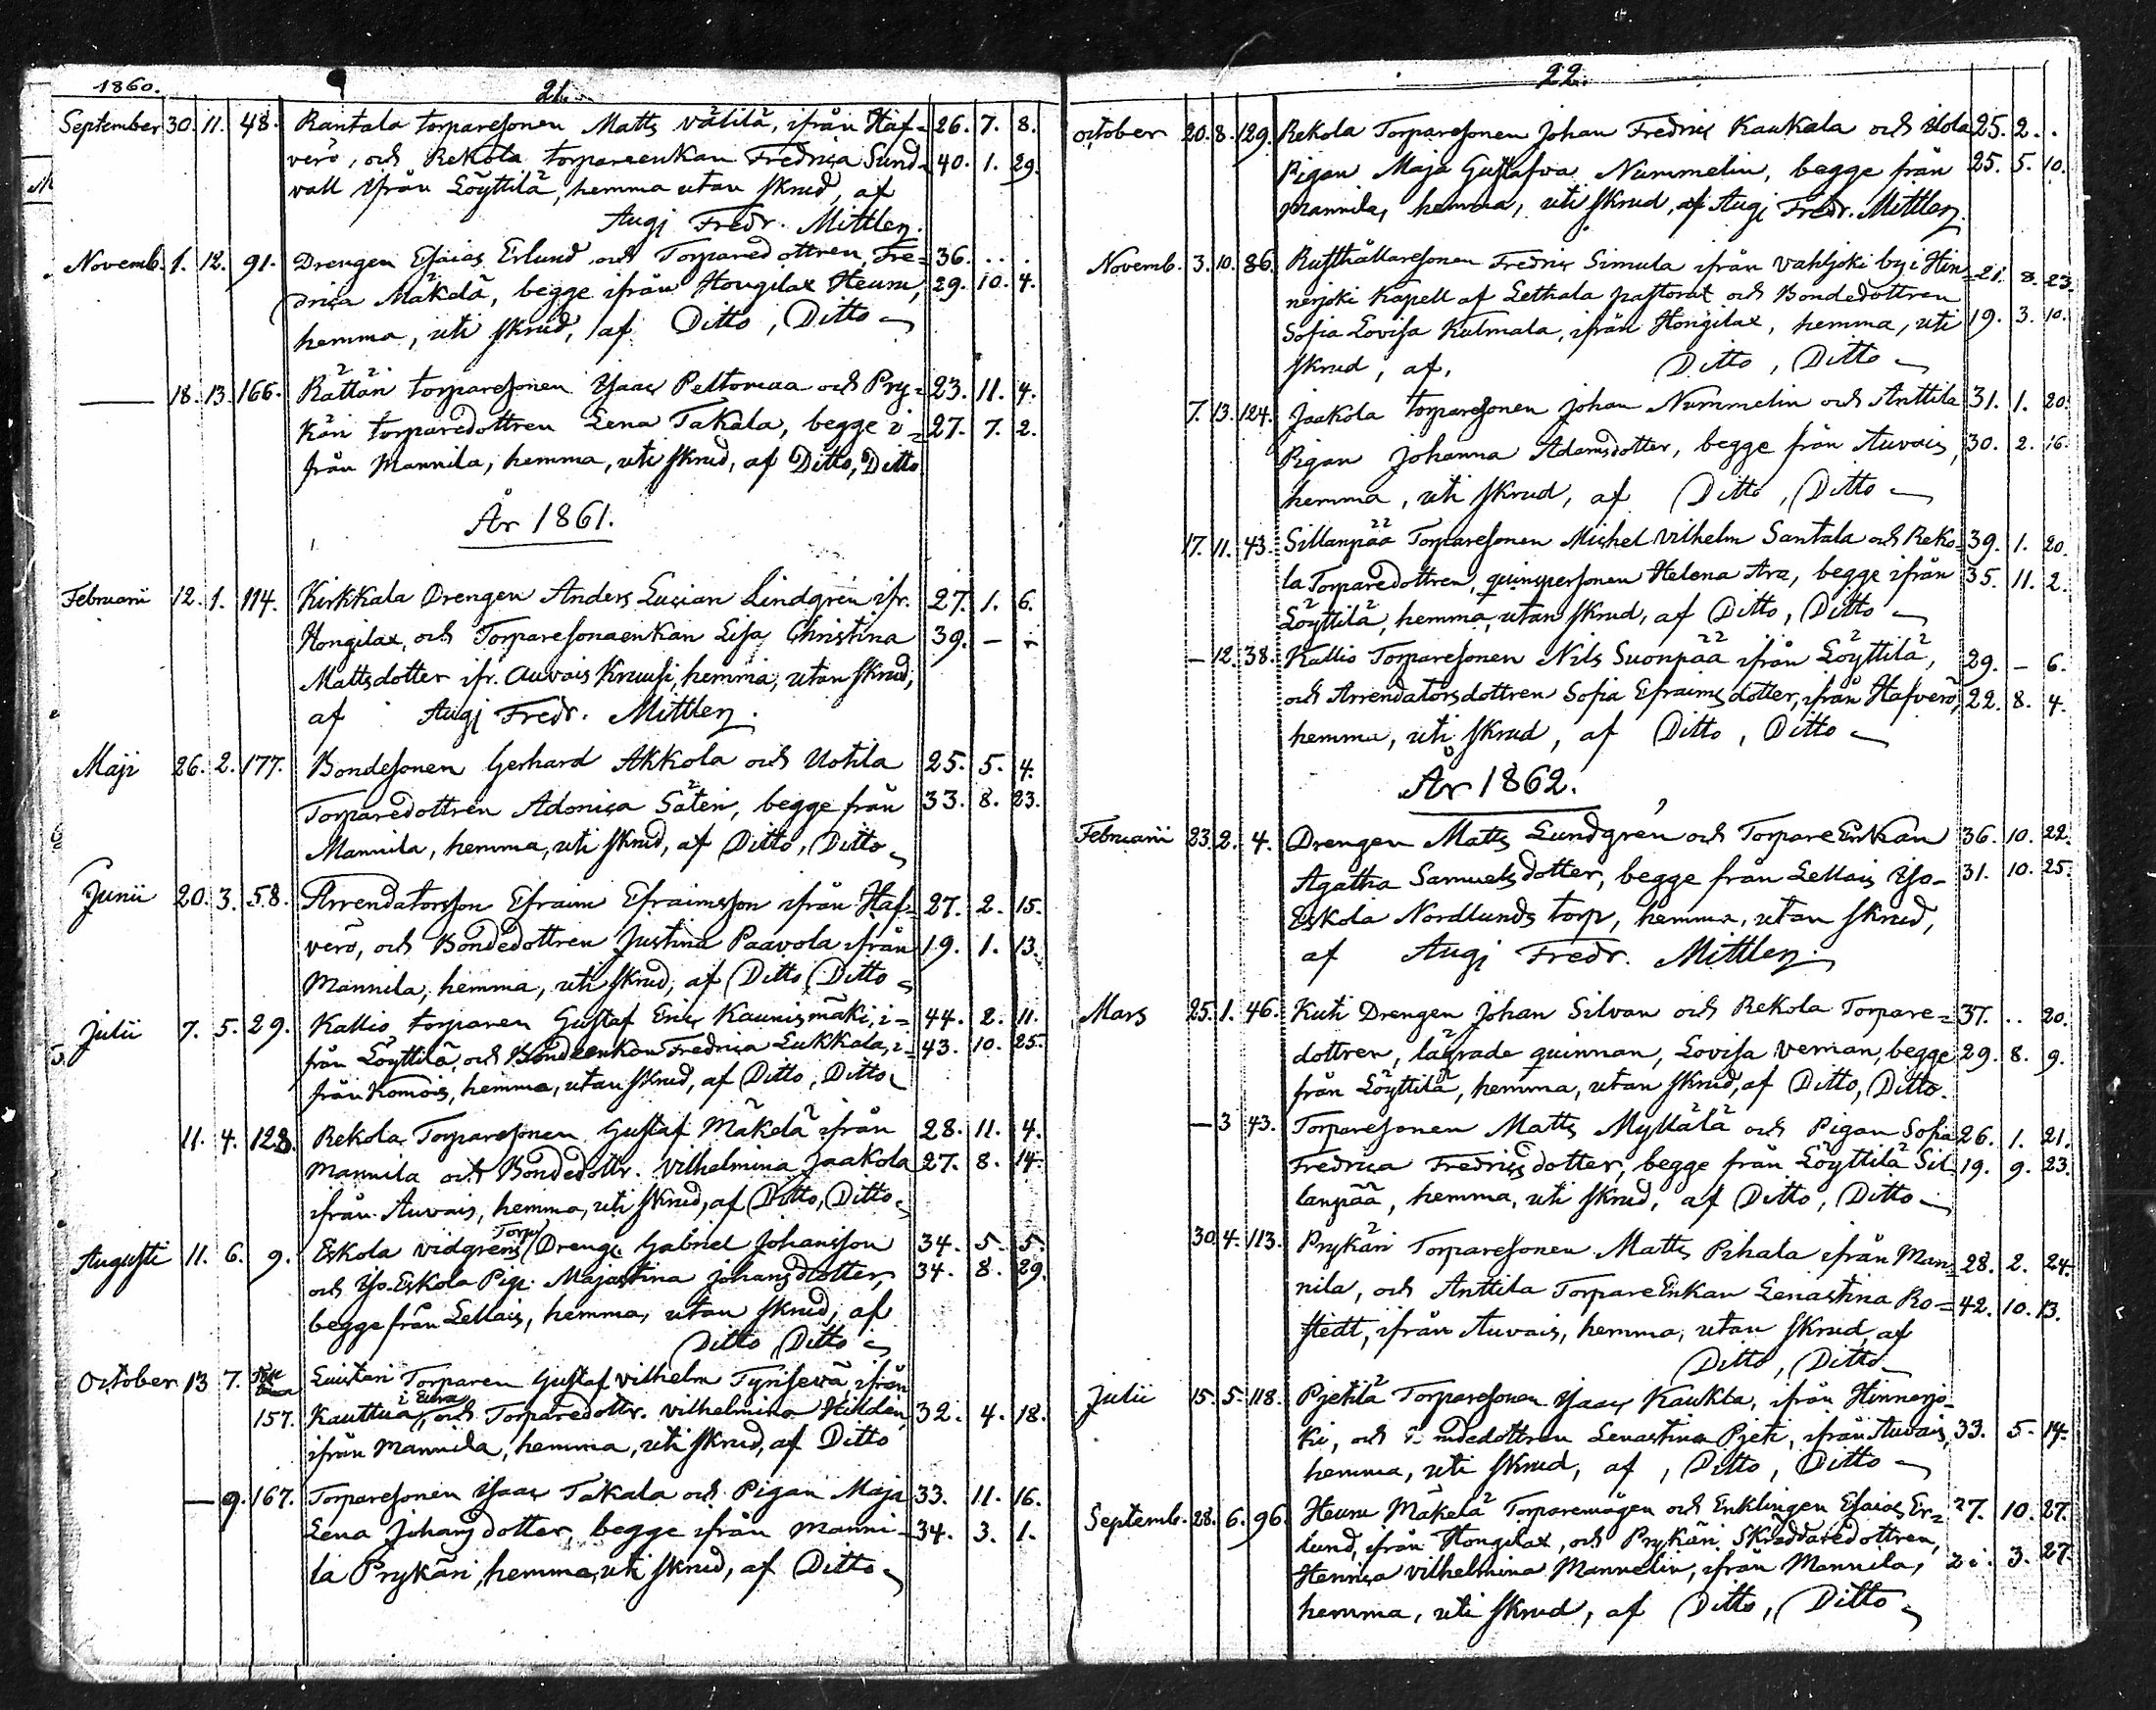 1860. 21.
September 30. 11. 48. Rantala torparesonen Matts Välilä, ifrån Haf= 26. 7. 8.
verö, och Rekola torpareenkan Fredrica Sund= 40. 1. 29.
vall ifrån Löyttilä, hemma utan skrud, af
Augj Fredr. Mittler.
Novemb. 1. 12. 91. Drengen Esaias Erlund och Torparedottren, Fre= 36. . . .
drica Mäkelä, begge ifrån Hongilax Heuru, 29. 10. 4.
hemma, uti skrud, af Ditto, Ditto
— 18. 13. 166. Rättäri torparesonen Isaac Peltomaa och Pry= 23. 11. 4.
käri torparedottren Lena Takala, begge i= 27. 7. 2.
från Mannila, hemma, uti skrud, af Ditto, Ditto
År 1861.
Februarii 12. 1. 114. Kirkkala Drengen Anders Lucian Lindgren ifr. 27. 1. 6.
Hongilax, och Torparesonaenkan Lisa Christina 39. – –
Mattsdotter ifr. Auvais Kruusi, hemma, utan skrud,
af Augj Fredr. Mittler.
Maji 26. 2. 177. Bondesonen Gerhard Akkola och Uotila 25. 5. 4.
Torparedottren Adonica Säteri, begge från 33. 8. 23.
Mannila, hemma, uti skrud, af Ditto, Ditto
Junii 20. 3. 58. Arrendatorsson Efraim Efraimsson ifrån Haf= 27. 2. 15.
verö, och Bondedottren Justina Paavola ifrån 19. 1. 13.
Mannila, hemma, uti skrud, af Ditto Ditto
Julii 7. 5. 29. Kallio torparen Gustaf Eric Kaunismäki, i= 44. 2. 11.
från Löyttilä, och Bondeenkan Fredrica Lukkala, i= 43. 10. 25.
från Komois, hemma, utan skrud, af Ditto, Ditto
11. 4. 128. Rekola Torparesonen Gustaf Mäkelä ifrån 28. 11. 4.
Mannila och Bondedottr. Vilhelmina Jaakola 27. 8. 14.
ifrån Auvais, hemma, uti skrud, af Ditto, Ditto
Augusti 11. 6. 9. Eskola Vidgrens Torp Dreng. Gabriel Johansson 34. 5. 5.
och Iso-Eskola Pig. Majastina Johansdotter, 34. 8. 29.
begge från Lellais, hemma, utan skrud, af
Ditto Ditto
October 13 7. Luistari Torparen Gustaf Vilhelm Tynisevä, ifrån
157. Kauttua i Eura, och Torparedottr. Vilhelmina Hildén 32. 4. 18.
ifrån Mannila, hemma, uti skrud, af Ditto
— 9. 167. Torparesonen Isaac Takala och Pigan Maja 33. 11. 16.
Lena Johansdotter, begge ifrån Manni= 34. 3. 1.
la Prykäri, hemma, uti skrud, af Ditto
22.
October 20. 8. 129. Rekola Torparesonen Johan Fredric Kaukala och Idola 25. 2. .
Pigan Maja Gustafva Nummelin, begge från 25. 5. 10.
Mannila, hemma, uti skrud, af Augj Fredr. Mittler.
Novemb. 3. 10. 86. Rusthållaresonen Fredric Simula ifrån Vahljoki by i Hin= 21. 8. 23.
nerjoki Kapell af Lethala pastorat och Bondedottren
Sofia Lovisa Kulmala, ifrån Hongilax, hemma, uti 19. 3. 10.
skrud, af, Ditto, Ditto
7. 13. 124. Jaakola torparesonen Johan Nummelin och Anttila 31. 1. 20.
Pigan Johanna Adamsdotter, begge från Auvais, 30. 2. 16.
hemma, uti skrud, af Ditto, Ditto
17. 11. 43. Sillanpää Torparesonen Michel Vilhelm Santala och Reko= 39. 1. 20.
la Torparedottren, quinspersonen Helena Ara, begge ifrån 35. 11. 2.
Löyttilä, hemma, utan skrud, af Ditto, Ditto
— 12. 38. Kallio Torparesonen Nils Suonpää ifrån Löyttilä, 29. – 6.
och Arrendatorsdottren Sofia Efraimsdotter, ifrån Hafverö, 22. 8. 4.
hemma, uti skrud, af Ditto, Ditto
År 1862.
Februarii 23. 2. 4. Drengen Matts Lundgrén och TorpareEnkan 36. 10. 22.
Agatha Samuelsdotter, begge från Lellais Iso- 31. 10. 25.
Eskola Nordlunds torp, hemma, utan skrud,
af Augj Fredr. Mittler.
Mars 25. 1. 46. Kuti Drengen Johan Silvan och Rekola Torpare= 37. .. 20.
dottren, lägrade quinnan, Lovisa Verman, begge 29. 8. 9.
från Löyttilä, hemma, utan skrud, af Ditto, Ditto.
— 3 43. Torparesonen Matts Myllälä och Pigan Sofia 26. 1. 21.
Fredrica Fredricsdotter, begge från Löyttilä Sil= 19. 9. 23.
lanpää, hemma, uti skrud, af Ditto, Ditto
30. 4. 113. Prykäri Torparesonen Matts Pihala ifrån Man= 28. 2. 24.
nila, och Anttila TorpareEnkan Lenastina Ro= 42. 10. 13.
stedt, ifrån Auvais, hemma, utan skrud, af
Ditto, Ditto
Julii 15. 5. 118. Pjetilä Torparesonen Isaac Kaukla, ifrån Hinnerjo-
ki, och Bondedottren Lenastina Pjeti, ifrån Auvais, 33. 5. 14.
hemma, uti skrud, af, Ditto, Ditto
Septemb. 28. 6. 96. Heuru Mäkelä Torparemågen och Enklingen Esaias Er= 37. 10. 27.
lund, ifrån Hongilax, och Prykäri Skräddaredottren,
Henrica Vilhelmina Mannelin, ifrån Mannila, 3. 27.
hemma, uti skrud, af Ditto, Ditto